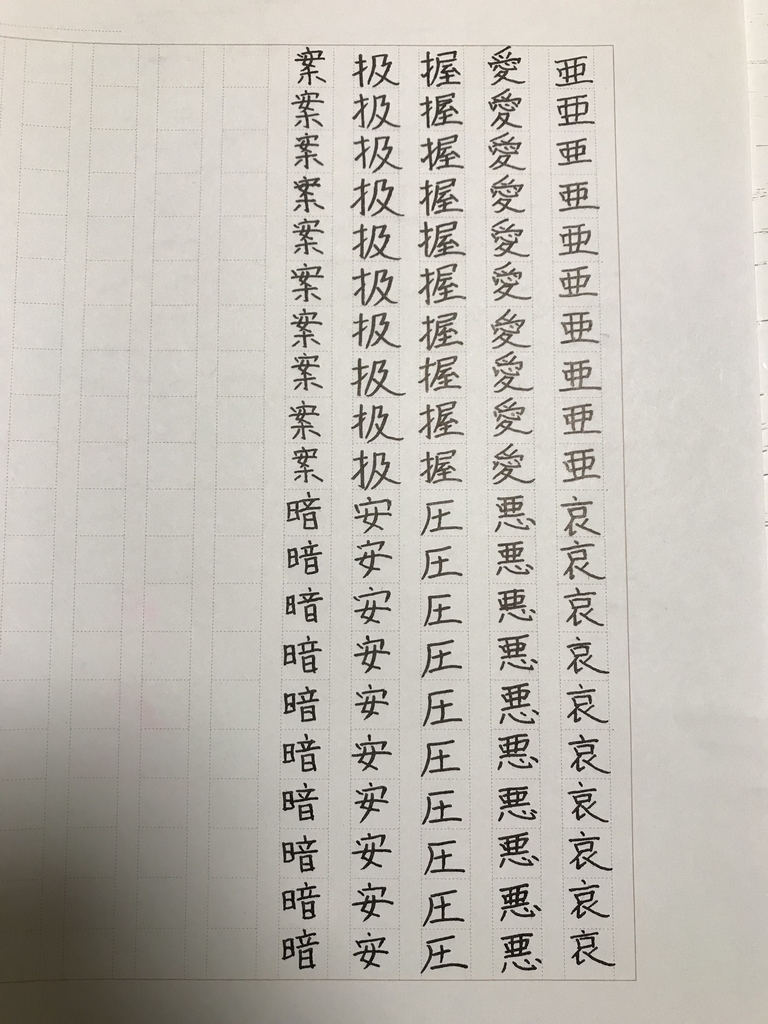 亜亜亜亜亜亜亜亜亜亜哀哀哀哀哀哀哀哀哀哀
愛愛愛愛愛愛愛愛愛愛悪悪悪悪悪悪悪悪悪悪
握握握握握握握握握握圧圧圧圧圧圧圧圧圧圧
扱扱扱扱扱扱扱扱扱扱安安安安安安安安安安
案案案案案案案案案案暗暗暗暗暗暗暗暗暗暗